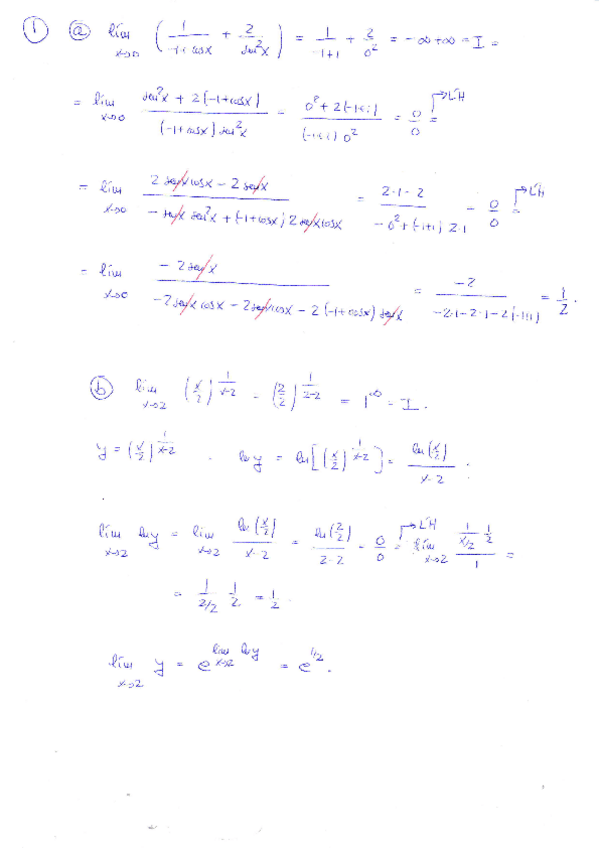 ① ⓐ lím x→0 (1/(-1+cosx) + 2/sen²x) = 1/(-1+1) + 2/0² = -∞+∞ = I =
= lím x→0 (sen²x + 2(-1+cosx))/((-1+cosx) sen²x) = (0²+2(-1+1))/((-1+1) 0²) = 0/0 = L'H
= lím x→0 (2 senx cosx - 2 senx)/(-senx sen²x + (-1+cosx) 2 senx cosx) = (2·1-2)/(-0²+(-1+1) 2·1) = 0/0 = L'H
= lím x→0 (-2 senx)/(-2 senx cosx - 2 senx cosx - 2(-1+cosx) senx) = -2/(-2·1-2·1-2(-1+1)) = 1/2.
ⓑ lím x→2 (x/2)^(1/(x-2)) = (2/2)^(1/(2-2)) = 1^∞ = I.
y = (x/2)^(1/(x-2)) . ln y = ln[(x/2)^(1/(x-2))] = ln(x/2)/(x-2) .
lím x→2 ln y = lím x→2 ln(x/2)/(x-2) = ln(2/2)/(2-2) = 0/0 = L'H lím x→2 (1/(x/2) · 1/2)/1 =
= 1/(2/2) · 1/2 = 1/2 .
lím x→2 y = e^(lím x→2 ln y) = e^(1/2).